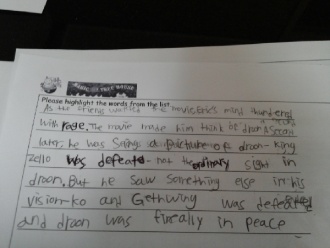 MAGIC TREE HOUSE
Please highlight the words from the list.
As the friend watched the movie, Eric's mind thundered
with rage. The movie made him think of droon a few
later, he was seeing a picture of droon- king
Zello was defeated- not the ordinary sight in
droon. But he saw something else in his
vision-ko and Gethwing was defeated
and droon was finally in peace